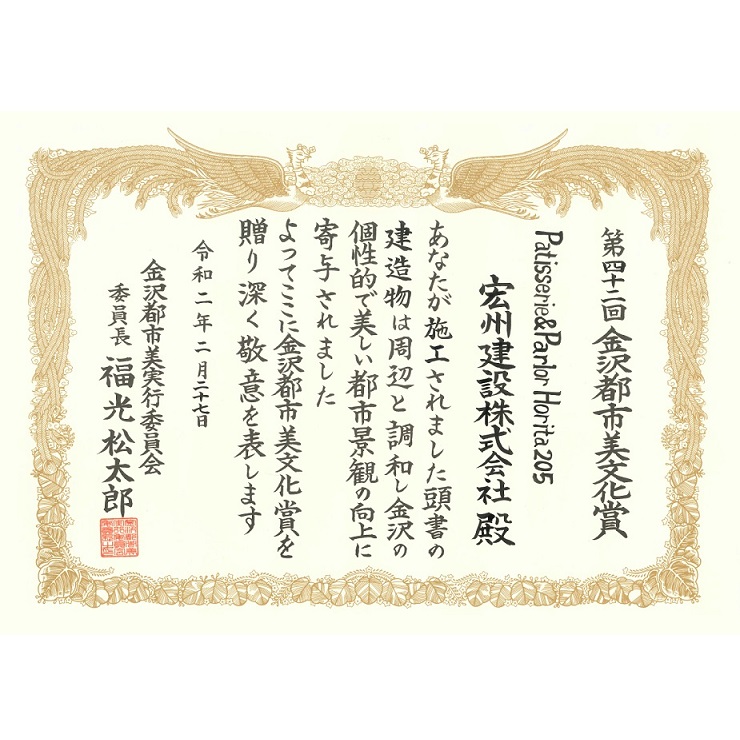 第四十二回 金沢都市美文化賞
Patisserie&Parlor Horita205
宏州建設株式会社 殿
あなたが施工されました頭書の
建造物は周辺と調和し金沢の
個性的で美しい都市景観の向上に
寄与されました
よってここに金沢都市美文化賞を
贈り深く敬意を表します
令和二年二月二十七日
金沢都市美実行委員会
委員長 福光松太郎